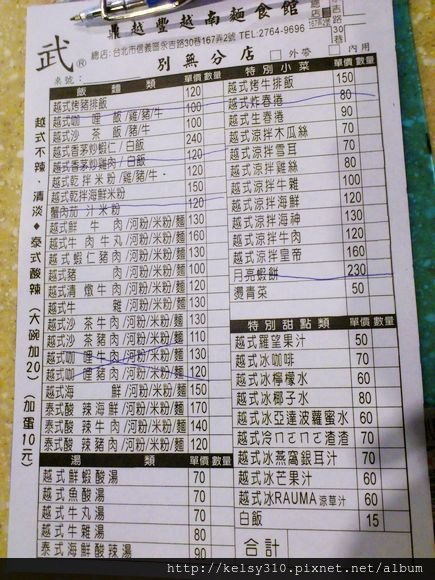 鼎越豐越南麵食館
武®
總店:台北市信義區永吉路30巷167弄2號 TEL:2764-9696
別無分店
桌號:
外帶 內用
越式不辣、清淡◆泰式酸辣(大碗加20)(加蛋10元)
飯麵類 單價 數量
越式烤豬排飯 120
越式咖哩飯/雞/豬/牛 100
越式沙茶飯/豬/牛 100
越式香茅炒蝦仁/白飯 240
越式香茅炒雞肉/白飯 120
越式乾拌米粉/雞/豬/牛 120
越式乾拌海鮮米粉 150
蟹肉茄汁米粉 120
越式鮮牛肉/河粉/米粉/麵 130
越式牛肉牛丸/河粉/米粉/麵 160
越式蝦仁豬肉/河粉/米粉/麵 130
越式豬肉/河粉/米粉/麵 100
越式清燉牛肉/河粉/米粉/麵 120
越式牛雜/河粉/米粉/麵 130
越式沙茶牛肉/河粉/米粉/麵 130
越式沙茶豬肉/河粉/米粉/麵 120
越式咖哩牛肉/河粉/米粉/麵 130
越式咖哩豬肉/河粉/米粉/麵 120
越式海鮮/河粉/米粉/麵 150
泰式酸辣海鮮/河粉/米粉/麵 170
泰式酸辣牛肉/河粉/米粉/麵 140
泰式酸辣豬肉/河粉/米粉/麵 120
湯類 單價 數量
越式鮮蝦酸湯 70
越式魚酸湯 70
越式牛丸湯 70
越式牛雜湯 80
泰式海鮮酸辣湯 90
特別小菜 單價 數量
越式烤牛排飯 150
越式炸春捲 80
越式生春捲 90
越式涼拌木瓜絲 100
越式涼拌雪耳 100
越式涼拌雞絲 100
越式涼拌牛雜 100
越式涼拌海鮮 120
越式涼拌海神 120
越式涼拌牛肉 120
越式涼拌皇帝 160
月亮蝦餅 230
燙青菜 50
特別甜點類 單價 數量
越式羅望果汁 50
越式冰咖啡 70
越式冰檸檬水 60
越式冰椰子水 80
越式冰亞達波蘿蜜水 60
越式冷ㄇㄛㄇㄛ渣渣 70
越式冰燕窩銀耳汁 70
越式冰芒果汁 60
越式冰RAUMA涼草汁 60
白飯 15
合計
http://kelsy310.pixnet.net/album